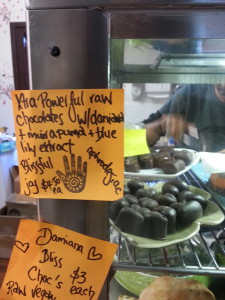 Xtra Powerful raw
chocolates w/damiana
+ muira puama + blue
lily extract
Blissful
joy $4.50
ea
aphrodisiac
Damiana
Bliss
Choc's $3
each
Raw vegan